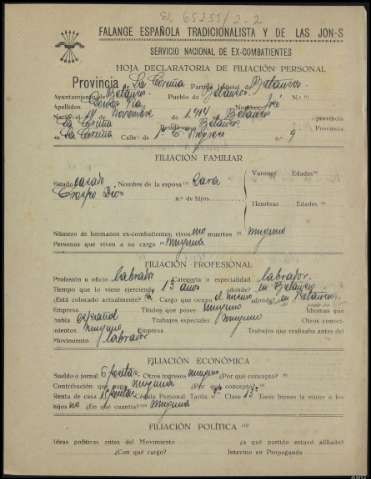 FALANGE ESPAÑOLA TRADICIONALISTA Y DE LAS JON-S
SERVICIO NACIONAL DE EX-COMBATIENTES
HOJA DECLARATORIA DE FILIACIÓN PERSONAL
Provincia La Coruña Partido Judicial Betanzos
Ayuntamiento de Betanzos Pueblo de Betanzos N.º
Apellidos Nombre José
Nació el de Noviembre de 1914 Betanzos provincia
La Coruña Betanzos Provincia
La Coruña Calle de Progreso n.º 9
FILIACIÓN FAMILIAR
Estado casado Nombre de la esposa Sara
Crespo n.º de hijos.
Varones Edades
Hembras Edades
Número de hermanos ex-combatientes, vivos uno muertos ninguno
Personas que viven a su cargo ninguna
FILIACIÓN PROFESIONAL
Profesión u oficio labrador Categoría o especialidad labrador
Tiempo que lo viene ejerciendo 13 años en Betanzos
¿Está colocado actualmente? Cargo que ocupa el mismo en Betanzos
Empresa Títulos que posee ninguno Idiomas que
habla español Trabajos especiales ninguno Otros conoci-
mientos ninguno Trabajos que realizaba antes del
Movimiento labrador
FILIACIÓN ECONÓMICA
Sueldo o jornal 6 pesetas Otros ingresos ninguno ¿Por qué concepto?
Contribución que paga ninguna ¿Por qué concepto?
Renta de casa 15 pesetas Cédula Personal Tarifa Clase 13ª Tiene bienes la mujer o los
hijos no ¿En qué cuantía? ninguna
FILIACIÓN POLÍTICA
Ideas políticas antes del Movimiento ¿a qué partido estuvo afiliado?
¿Con qué cargo? Intervino en Propaganda